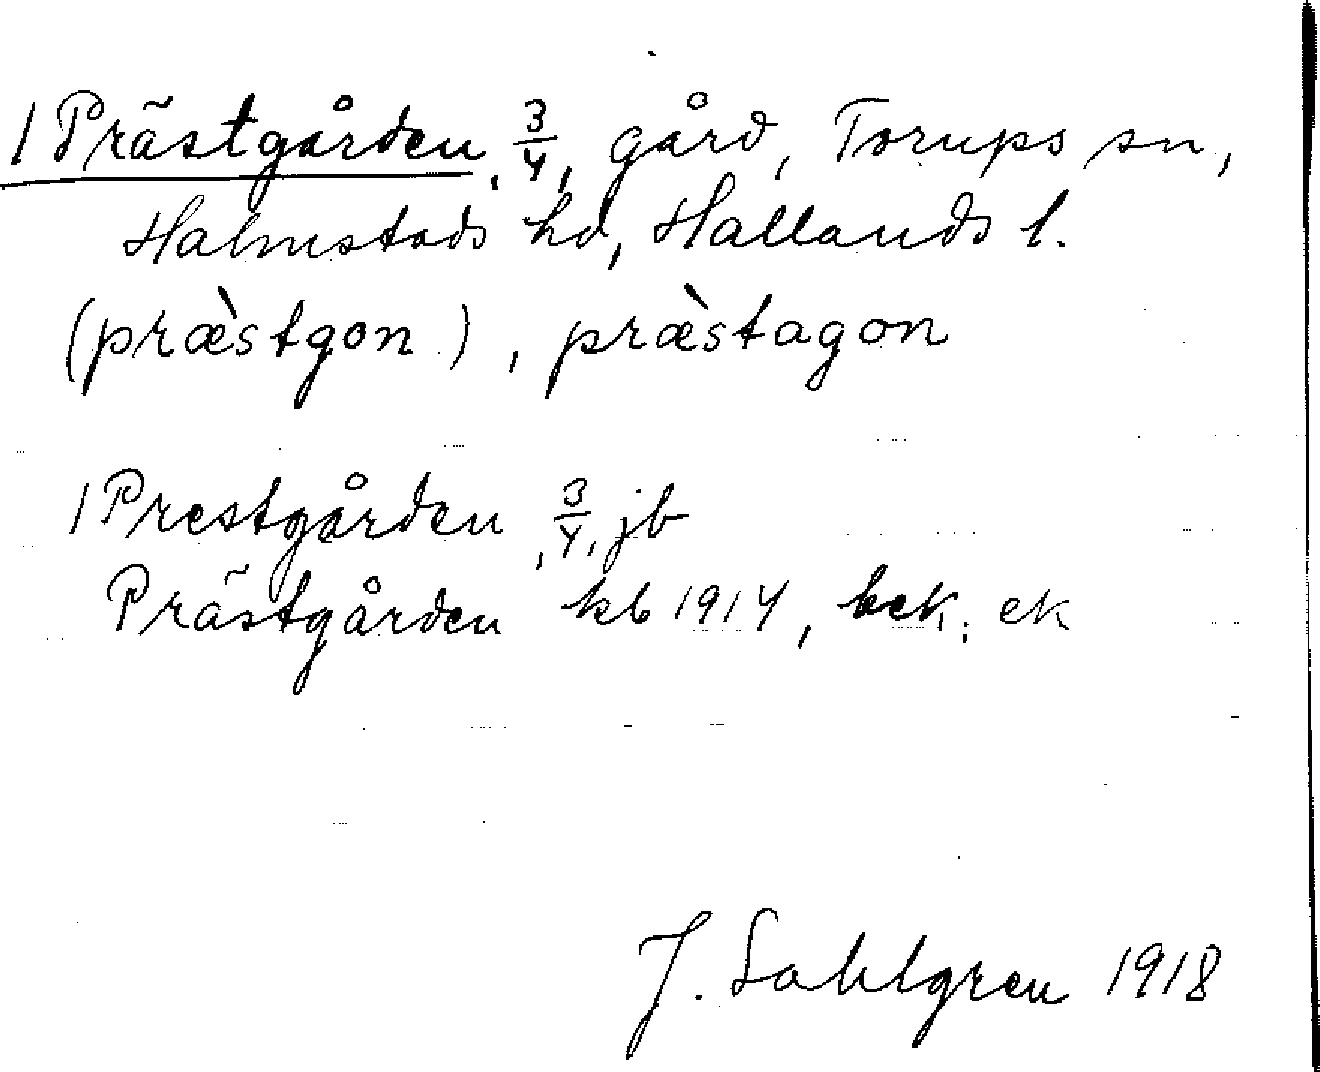 1 Prästgården, 3/4, gård, Torups sn,
Halmstads hd, Hallands l.
(præ̀stgon), præ̀stagon
1 Prestgården, 3/4, jb
Prästgården kb 1914, bek, ek
J. Sahlgren 1918